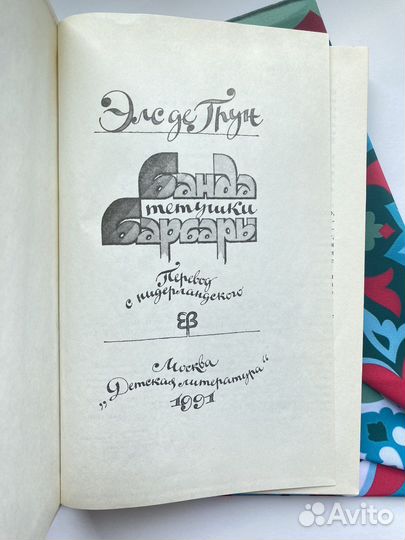 Элс де Грун
Банда
тетушки
Барбары
Перевод
с нидерландского
Москва
„Детская литература“
1991
Avito